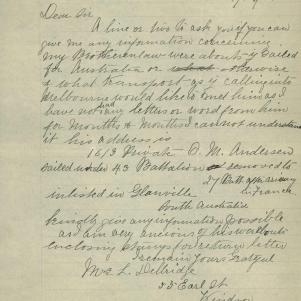 Dear Sir
A line or two to ask you if you can
give me any information concerning
my Brotherenlaw were abouts if sailed
for Australia or otherwise
& what transport as if calling into
Melbourne would like to meet him as I
have not had any letters or word from him
for months & months I cannot understand
it his address is
1613 Private O. M. Andersen
sailed under 43 Battalion removed to
27 Batt in France
inlisted in Glanville
South Australia
kindly give any information possible
as I am very ancious of his
enclosing stamps for return letter
I remain yours
Mrs L. Delbridge
Earl St
Windsor